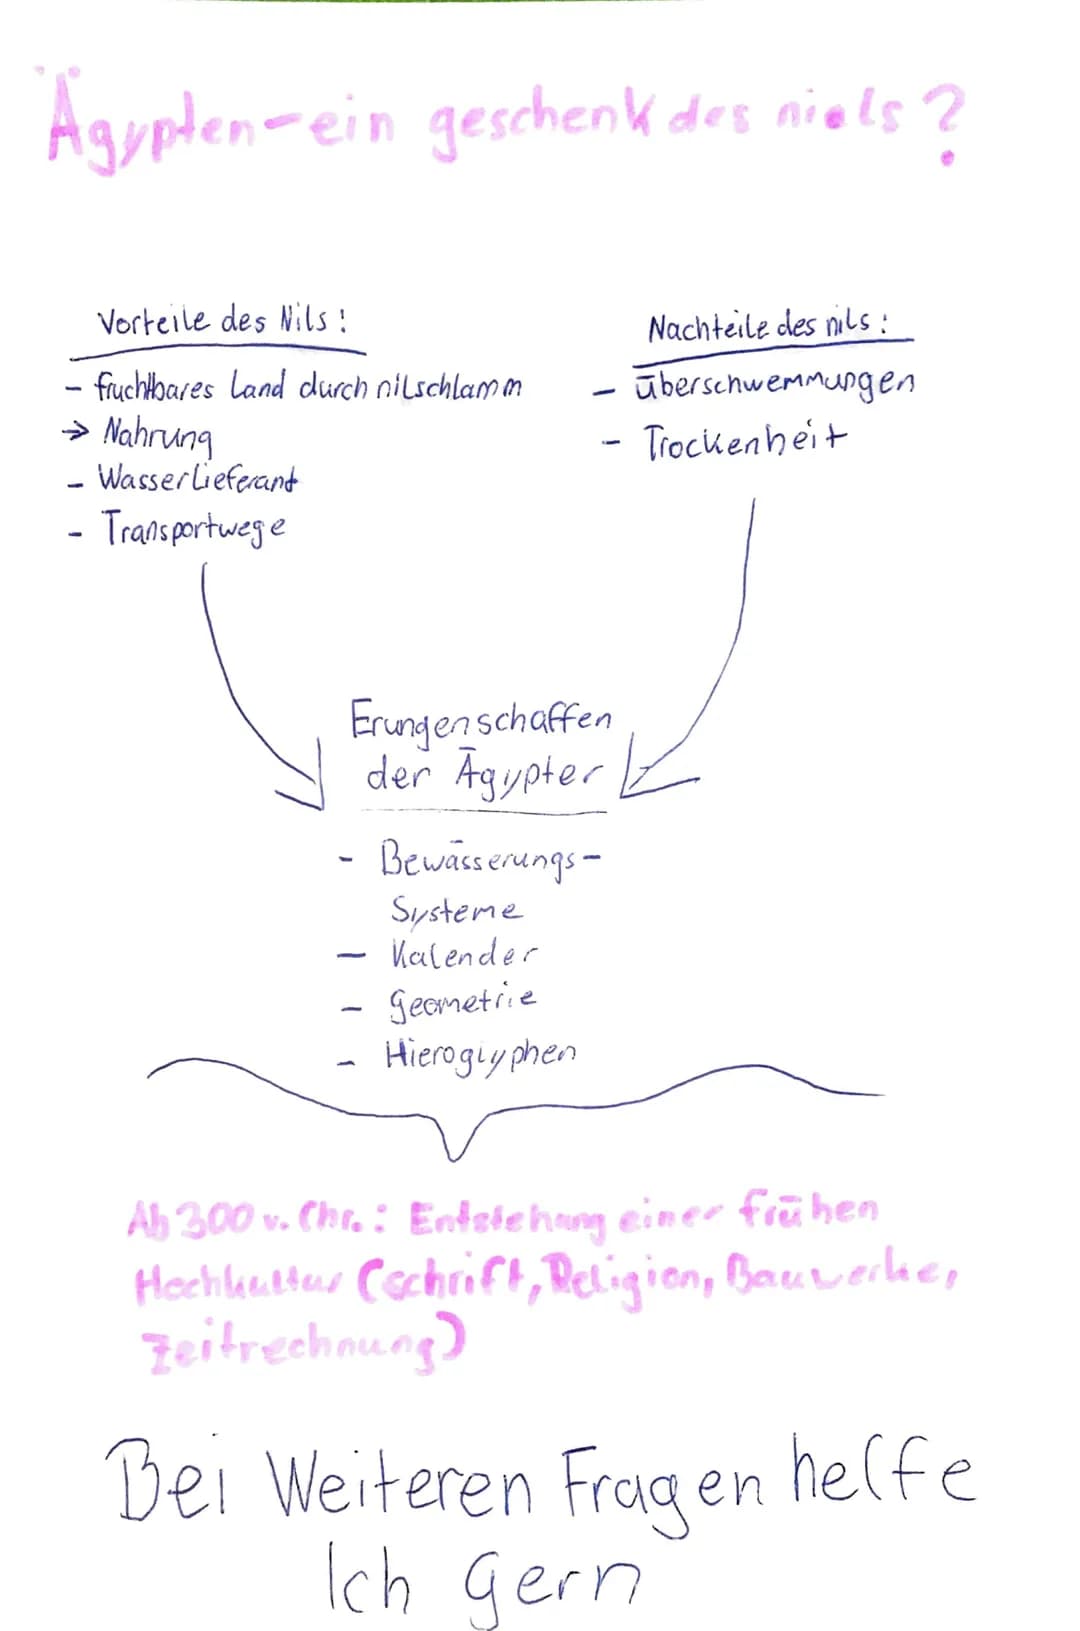 Ägypten - ein geschenk des niels?
Vorteile des Nils!
- fruchtbares Land durch nilschlamm
→ Nahrung
- Wasserlieferant
- Transportwege
Nachteile des nils:
- überschwemmungen
- Trockenheit
Erungenschaffen
der Ägypter
- Bewässerungs-
Systeme
- Kalender
- Geometrie
- Hieroglyphen
Ab 300 v. Chr.: Entstehung einer frühen
Hochkultur (schrift, Religion, Bauwerke,
Zeitrechnung)
Bei Weiteren Fragen helfe
Ich gern